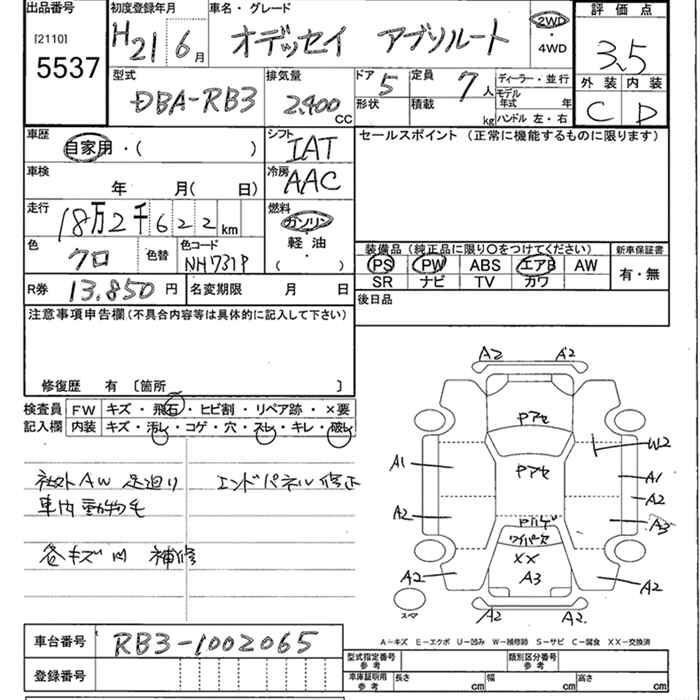 出品番号
[2110]
5537
初度登録年月
H21 6月
車名・グレード
オデッセイ アブソルート
2WD
・4WD
評価点
3.5
外装 内装
C D
型式
DBA-RB3
排気量
2,400
CC
ドア 5
形状
定員 7人
積載 kg
ディーラー・並行
モデル
年式 年
ハンドル 左・右
車歴
自家用・( )
シフト
IAT
セールスポイント (正常に機能するものに限ります)
車検
年 月( 日)
冷房
AAC
走行
18万2千622km
燃料
ガソリン
軽油
( )
色
クロ
色替
色コード
NH731P
装備品 (純正品に限り○をつけてください)
新車保証書
PS PW ABS エアB AW
SR ナビ TV カワ
有・無
R券 13.850 円
名変期限 月 日
後日品
注意事項申告欄 (不具合内容等は具体的に記入して下さい)
修復歴 有 〔箇所 〕
検査員 FW キズ・飛石・ヒビ割・リペア跡・×要
記入欄 内装 キズ・汚れ・コゲ・穴・スレ・キレ・破れ
社外AW 足廻り
エンドパネル修正
車内動物毛
各キズ凹 補修
A2 A2
Pアセ
W2
A1
Pアセ
A1
A2
A2
A3
ワイパーセ
XX
A3
A2
A2
スマ
A2 A2
A−キズ E−エクボ U−凹み W−補修跡 S−サビ C−腐食 XX−交換済
車台番号 RB3-1002065
登録番号
型式指定番号
参考
類別区分番号
参考
車庫証明用
参考
長さ cm 幅 cm 高さ cm